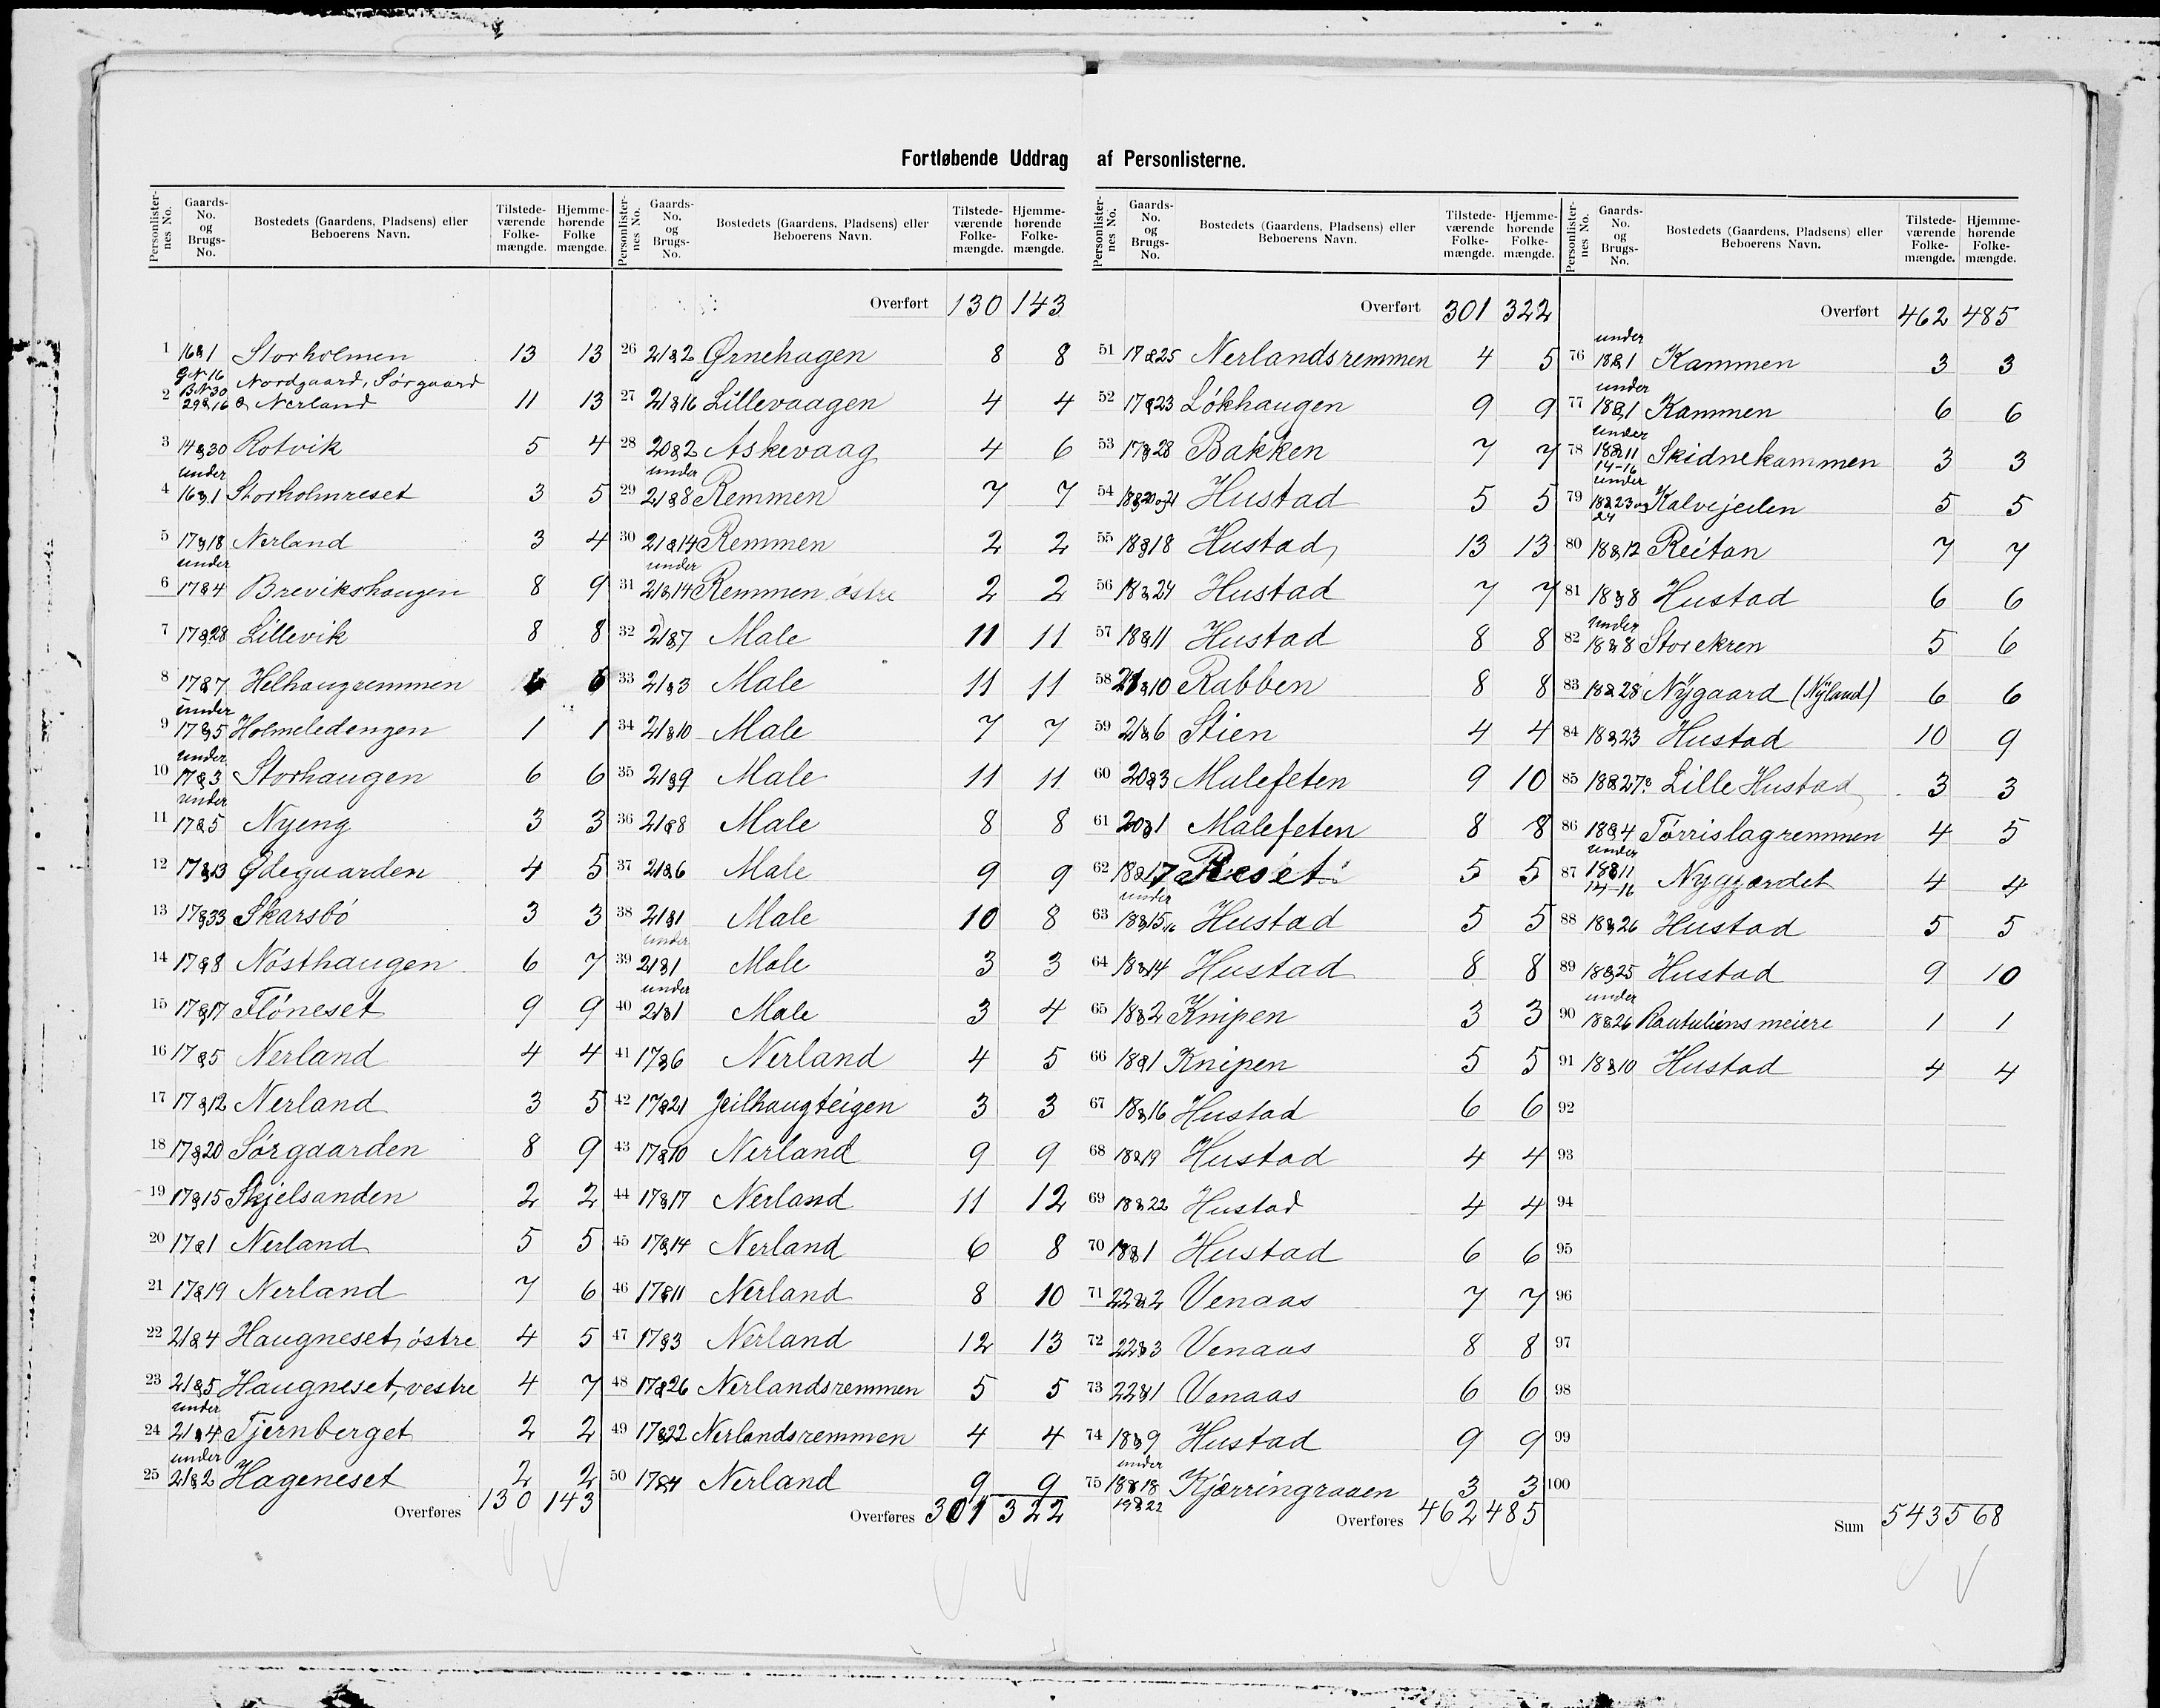 Fortløbende Uddrag af Personlisterne.
Personlisternes No. Gaards-No. og Brugs-No. Bostedets (Gaardens, Pladsens) eller Beboerens Navn. Tilstedeværende Folkemængde. Hjemmehørende Folkemængde.
1 16 & 1 Storholmen 13 13
2 G.N. 16 B.N. 30 29 & 16 Nordgaard, Sørgaard & Nerland 11 13
3 14 & 30 Rotvik 5 4
4 under 16 & 1 Storholmreset 3 5
5 17 & 18 Nerland 3 4
6 under 17 & 4 Brevikshaugen 8 9
7 17 & 28 Lillevik 8 8
8 17 & 7 Helhaugremmen 6 6
9 under 17 & 5 Holmeledengen 1 1
10 under 17 & 3 Storhaugen 6 6
11 under 17 & 5 Nyeng 3 3
12 17 & 13 Ødegaarden 4 5
13 17 & 33 Skarsbö 3 3
14 17 & 8 Nösthaugen 6 7
15 17 & 17 Flöneset 9 9
16 17 & 5 Nerland 4 4
17 17 & 12 Nerland 3 5
18 17 & 20 Sörgaarden 8 9
19 17 & 15 Skjelsanden 2 2
20 17 & 1 Nerland 5 5
21 17 & 19 Nerland 7 6
22 21 & 4 Haugneset, östre 4 5
23 21 & 5 Haugneset, vestre 4 7
24 under 21 & 4 Tjernberget 2 2
25 under 21 & 2 Hageneset 2 2
Overføres 130 143
Overført 130 143
26 21 & 2 Ørnehagen 8 8
27 21 & 16 Lillevaagen 4 4
28 20 & 2 Askevaag 4 6
29 under 21 & 8 Remmen 7 7
30 21 & 14 Remmen 2 2
31 under 21 & 14 Remmen östre 2 2
32 21 & 7 Male 11 11
33 21 & 3 Male 11 11
34 21 & 10 Male 7 7
35 21 & 9 Male 11 11
36 21 & 8 Male 8 8
37 21 & 6 Male 9 9
38 21 & 1 Male 10 8
39 under 21 & 1 Male 3 3
40 under 21 & 1 Male 3 4
41 17 & 6 Nerland 4 5
42 17 & 21 Jeilhaugteigen 3 3
43 17 & 10 Nerland 9 9
44 17 & 17 Nerland 11 12
45 17 & 14 Nerland 6 8
46 17 & 11 Nerland 8 10
47 17 & 3 Nerland 12 13
48 17 & 26 Nerlandsremmen 5 5
49 17 & 22 Nerlandsremmen 4 4
50 17 & 4 Nerland 9 9
Overføres 301 322
Overført 301 322
51 17 & 25 Nerlandsremmen 4 5
52 17 & 23 Lökhaugen 9 9
53 17 & 28 Bakken 7 7
54 18 & 20 og 21 Hustad 5 5
55 18 & 18 Hustad 13 13
56 18 & 24 Hustad 7 7
57 18 & 11 Hustad 8 8
58 21 & 10 Rabben 8 8
59 21 & 6 Stien 4 4
60 20 & 3 Malefeten 9 10
61 20 & 1 Malefeten 8 8
62 18 & 17 Reset 5 5
63 under 18 & 15, 16 Hustad 5 5
64 18 & 14 Hustad 8 8
65 18 & 2 Knipen 3 3
66 18 & 1 Knipen 5 5
67 18 & 16 Hustad 6 6
68 18 & 19 Hustad 4 4
69 18 & 22 Hustad 4 4
70 18 & 1 Hustad 6 6
71 22 & 2 Venaas 7 7
72 22 & 3 Venaas 8 8
73 22 & 1 Venaas 6 6
74 18 & 9 Hustad 9 9
75 under 18 & 18 19 & 22 Kjærringraaen 3 3
Overføres 462 485
Overført 462 485
76 under 18 & 1 Kammen 3 3
77 under 18 & 1 Kammen 6 6
78 under 18 & 11 14-16 Skidnekammen 3 3
79 under 18 & 23 og 24 Kalvejeilen 5 5
80 18 & 12 Reitan 7 7
81 18 & 8 Hustad 6 6
82 under 18 & 8 Storekren 5 6
83 18 & 28 Nygaard (Nyland) 6 6
84 18 & 23 Hustad 10 9
85 18 & 27 Lille Hustad 3 3
86 18 & 4 Törrislagremmen 4 5
87 under 18 & 11 14-16 Nygjærdet 4 4
88 18 & 26 Hustad 5 5
89 18 & 25 Hustad 9 10
90 under 18 & 26 Rautuliens meiere 1 1
91 18 & 10 Hustad 4 4
92
93
94
95
96
97
98
99
100
Sum 543 568